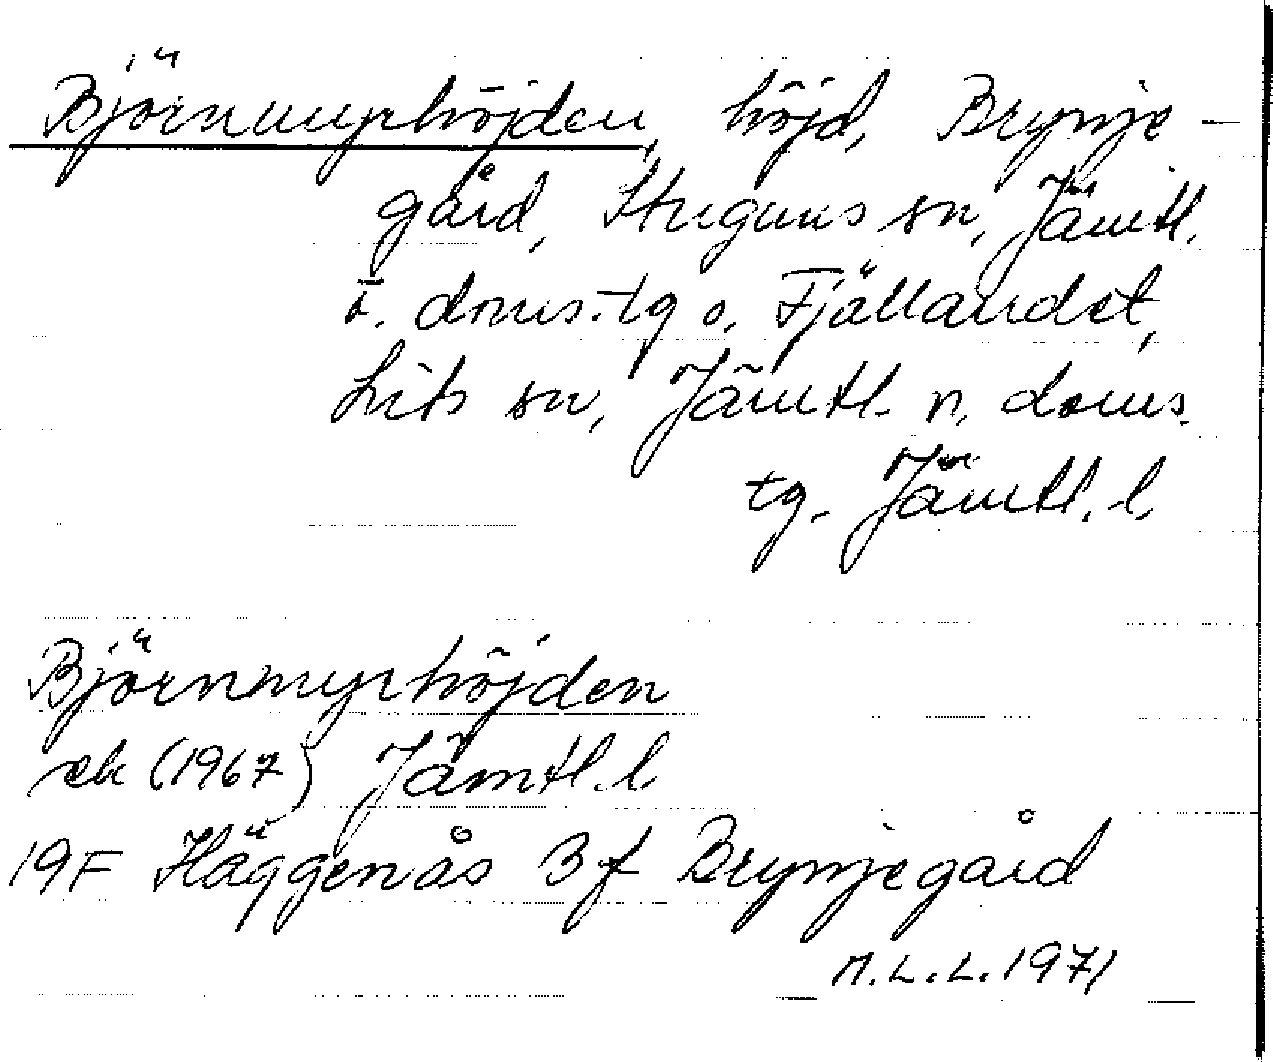 Björnmyrhöjden, höjd, Brynje-
gård, Stuguns sn, Jämtl.
ö. doms.-tg o. Fjällandet,
Lits sn, Jämtl. n. doms.
tg. Jämtl. l.
Björnmyrhöjden
ek (1967) Jämtl. l
19F Häggenås 3 f Brynjegård
M.L.L. 1971